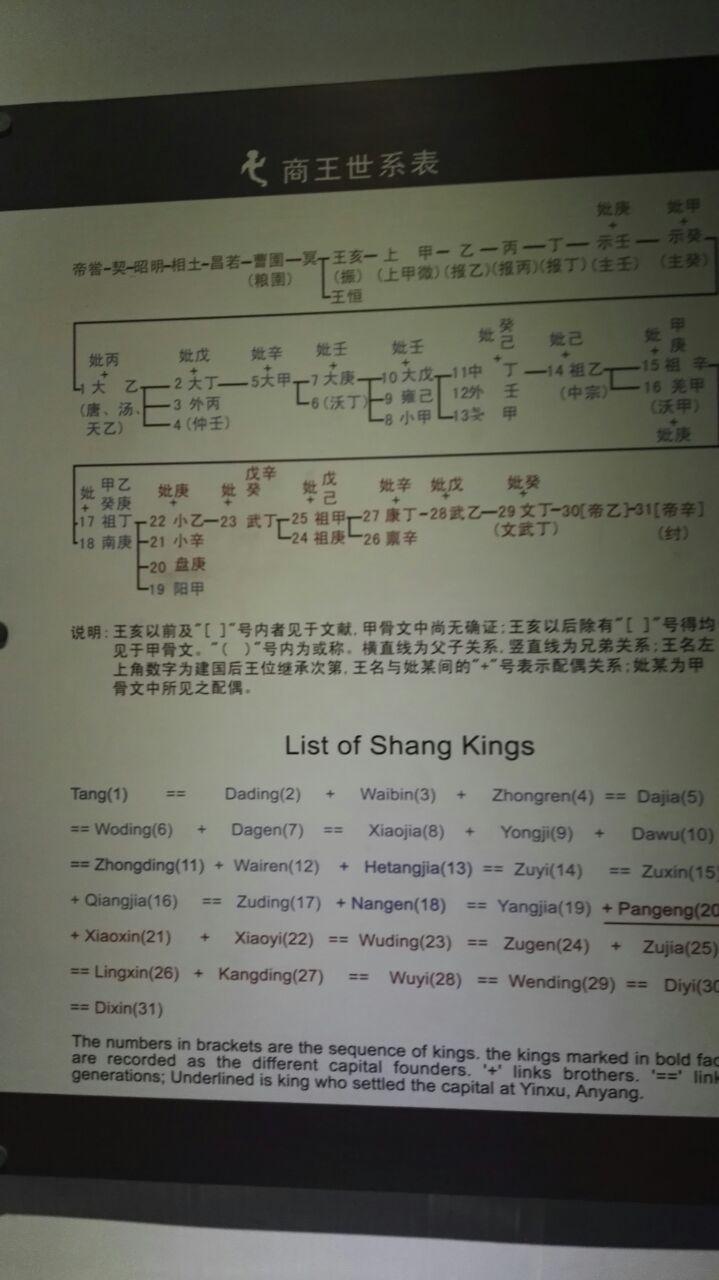 商王世系表
妣庚 妣甲
+ +
帝喾-契-昭明-相土-昌若-曹圉-冥 王亥-上 甲-乙-丙-丁-示壬-示癸
(粮圉) (振) (上甲微)(报乙)(报丙)(报丁)(主壬) (主癸)
王恒
癸 甲
妣丙 妣戊 妣辛 妣壬 妣壬 妣己 妣己 妣庚
+ + + + + + + +
1大 乙 2大丁 5大甲 7大庚 10大戊 11中 丁 14祖乙 15祖 辛
(唐、汤、 3外丙 6(沃丁) 9雍己 12外 壬 (中宗) 16羌甲
天乙) 4(仲壬) 8小甲 13戔 甲 (沃甲)
+
妣庚
甲乙 戊辛 戊
妣癸庚 妣庚 妣癸 妣己 妣辛 妣戊 妣癸
+ + + + + + +
17祖丁 22小乙-23 武丁 25祖甲 27康丁-28武乙-29文丁-30[帝乙]-31[帝辛]
18南庚 21小辛 24祖庚 26禀辛 (文武丁) (纣)
20盘庚
19阳甲
说明:王亥以前及"[ ]"号内者见于文献,甲骨文中尚无确证;王亥以后除有"[ ]"号得均
见于甲骨文。"( )"号内为或称。横直线为父子关系,竖直线为兄弟关系;王名左
上角数字为建国后王位继承次第,王名与妣某间的"+"号表示配偶关系;妣某为甲
骨文中所见之配偶。
List of Shang Kings
Tang(1) == Dading(2) + Waibin(3) + Zhongren(4) == Dajia(5)
== Woding(6) + Dagen(7) == Xiaojia(8) + Yongji(9) + Dawu(10)
== Zhongding(11) + Wairen(12) + Hetangjia(13) == Zuyi(14) == Zuxin(15
+ Qiangjia(16) == Zuding(17) + Nangen(18) == Yangjia(19) + Pangeng(20
+ Xiaoxin(21) + Xiaoyi(22) == Wuding(23) == Zugen(24) + Zujia(25)
== Lingxin(26) + Kangding(27) == Wuyi(28) == Wending(29) == Diyi(30
== Dixin(31)
The numbers in brackets are the sequence of kings. the kings marked in bold fac
are recorded as the different capital founders. '+' links brothers. '==' link
generations; Underlined is king who settled the capital at Yinxu, Anyang.